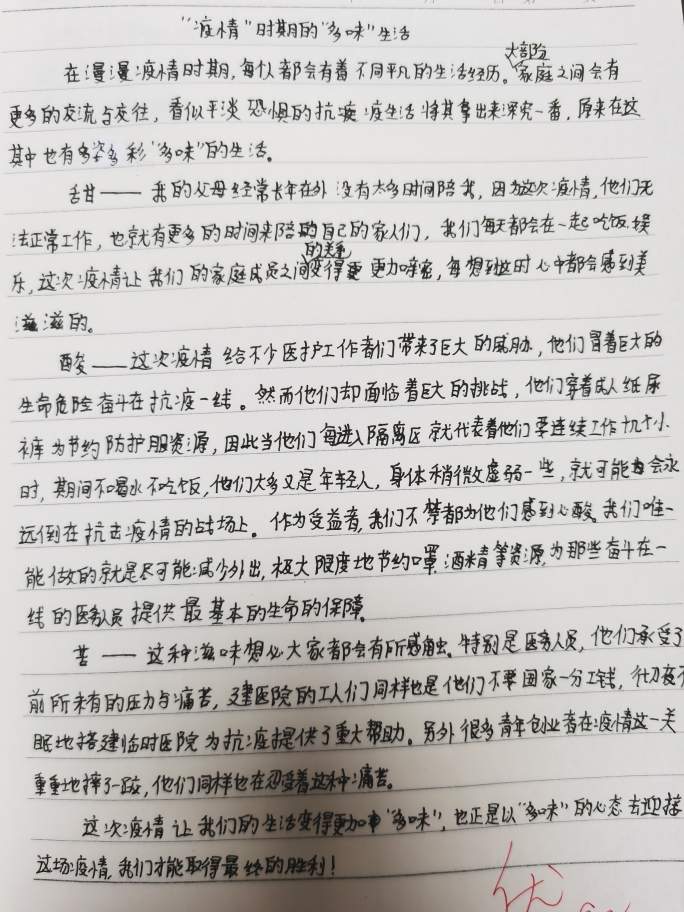 “疫情”时期的“多味”生活
在漫漫疫情时期,每个人都会有着不同平凡的生活经历。大部分家庭之间会有
更多的交流与交往,看似平淡恐惧的抗疫生活将其拿出来深究一番,原来在这
其中也有多姿多彩“多味”的生活。
舌甘——我的父母经常长年在外没有太多时间陪我,因为这次疫情,他们无
法正常工作,也就有更多的时间来陪自己的家人们,我们每天都会在一起吃饭娱
乐,这次疫情让我们的家庭成员之间的关系变得更加亲密,每想到这时心中都会感到美
滋滋的。
酸——这次疫情给不少医护工作者们带来了巨大的威胁,他们冒着巨大的
生命危险奋斗在抗疫一线。然而他们却面临着巨大的挑战,他们穿着成人纸尿
裤为节约防护服资源,因此当他们每进入隔离区就代表着他们要连续工作十几个小
时,期间不喝水不吃饭,他们大多又是年轻人,身体稍微虚弱一些,就可能会永
远倒在抗击疫情的战场上。作为受益者,我们不禁都为他们感到心酸。我们唯一
能做的就是尽可能减少外出,极大限度地节约口罩、酒精等资源,为那些奋斗在一
线的医务人员提供最基本的生命的保障。
苦——这种滋味想必大家都会有所感触。特别是医务人员,他们承受了
前所未有的压力与痛苦,建医院的工人们同样也是他们不要国家一分工钱,彻夜不
眠地搭建临时医院为抗疫提供了重大帮助。另外很多青年创业者在疫情这一关
重重地摔了一跤,他们同样也在忍受着这种痛苦。
这次疫情让我们的生活变得更加“多味”,也正是以“多味”的心态去迎接
这场疫情,我们才能取得最终的胜利!
优